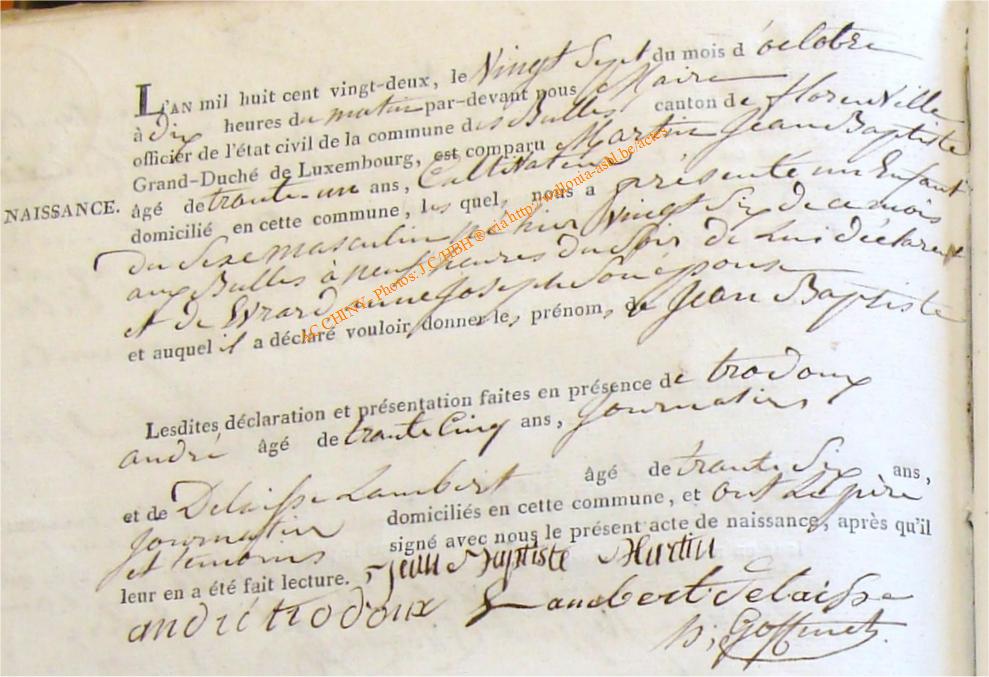 L'AN mil huit cent vingt-deux, le Vingt Sept du mois d'octobre
à dix heures du matin par-devant nous Maire
officier de l'état civil de la commune des Bulles canton de florenville
Grand-Duché de Luxembourg, est comparu Martin Jean Baptiste
NAISSANCE. âgé de trante-un ans, Cultivateur
domicilié en cette commune, lequel nous a présenté un Enfant
du Sexe masculin né hier Vingt Six de ce mois
aux Bulles à neuf heures du Soir de lui déclarent
et de Evrard anne Joseph Son épouse
et auquel il a déclaré vouloir donner les prénoms de Jean Baptiste
Lesdites déclaration et présentation faites en présence de trodoux
andré âgé de trante Cinq ans, journalier
et de Delaisse Lambert âgé de trante Six ans,
journalier domiciliés en cette commune, et ont Le père
et temoins signé avec nous le présent acte de naissance, après qu'il
leur en a été fait lecture. Jean Baptiste Martin
andré trodoux Lambert Delaisse
Goffinet
AC CHINY - Photos: J C / HBH ® via http://wallonia-asbl.be/actes